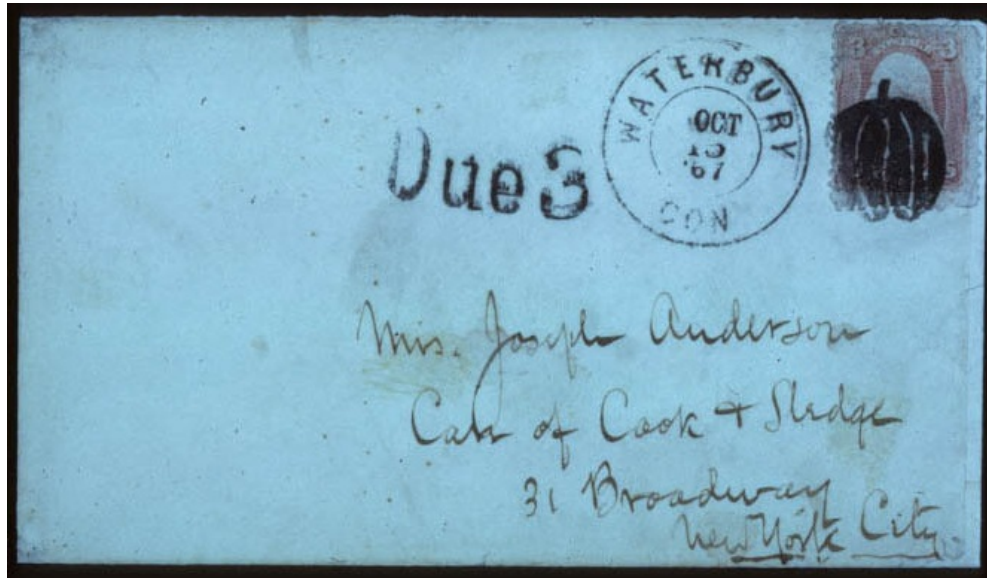 3 3
WATERBURY
OCT
'67
CON
Due 3
Mrs. Joseph Anderson
Care of Cook & Sledge
31 Broadway
New York City